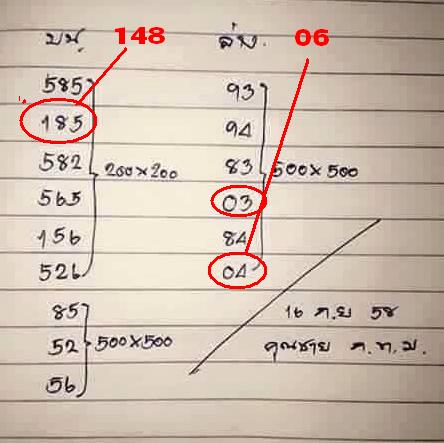 บน 148 ล่าง 06
585 93
185 94
582 200×200 83 500×500
565 03
156 84
526 04
85 16 ก.ย 58
52 500×500 คุณชาย ก.ท.ม.
56